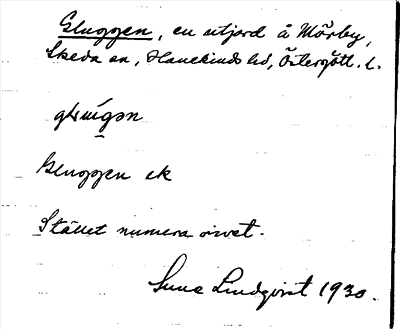 Gluggen, en utjord å Mörby,
Skeda sn, Hanekinds hd, Östergötl. l.
Gluggen ek
Stället numera okänt.
Sune Lindqvist 1930.